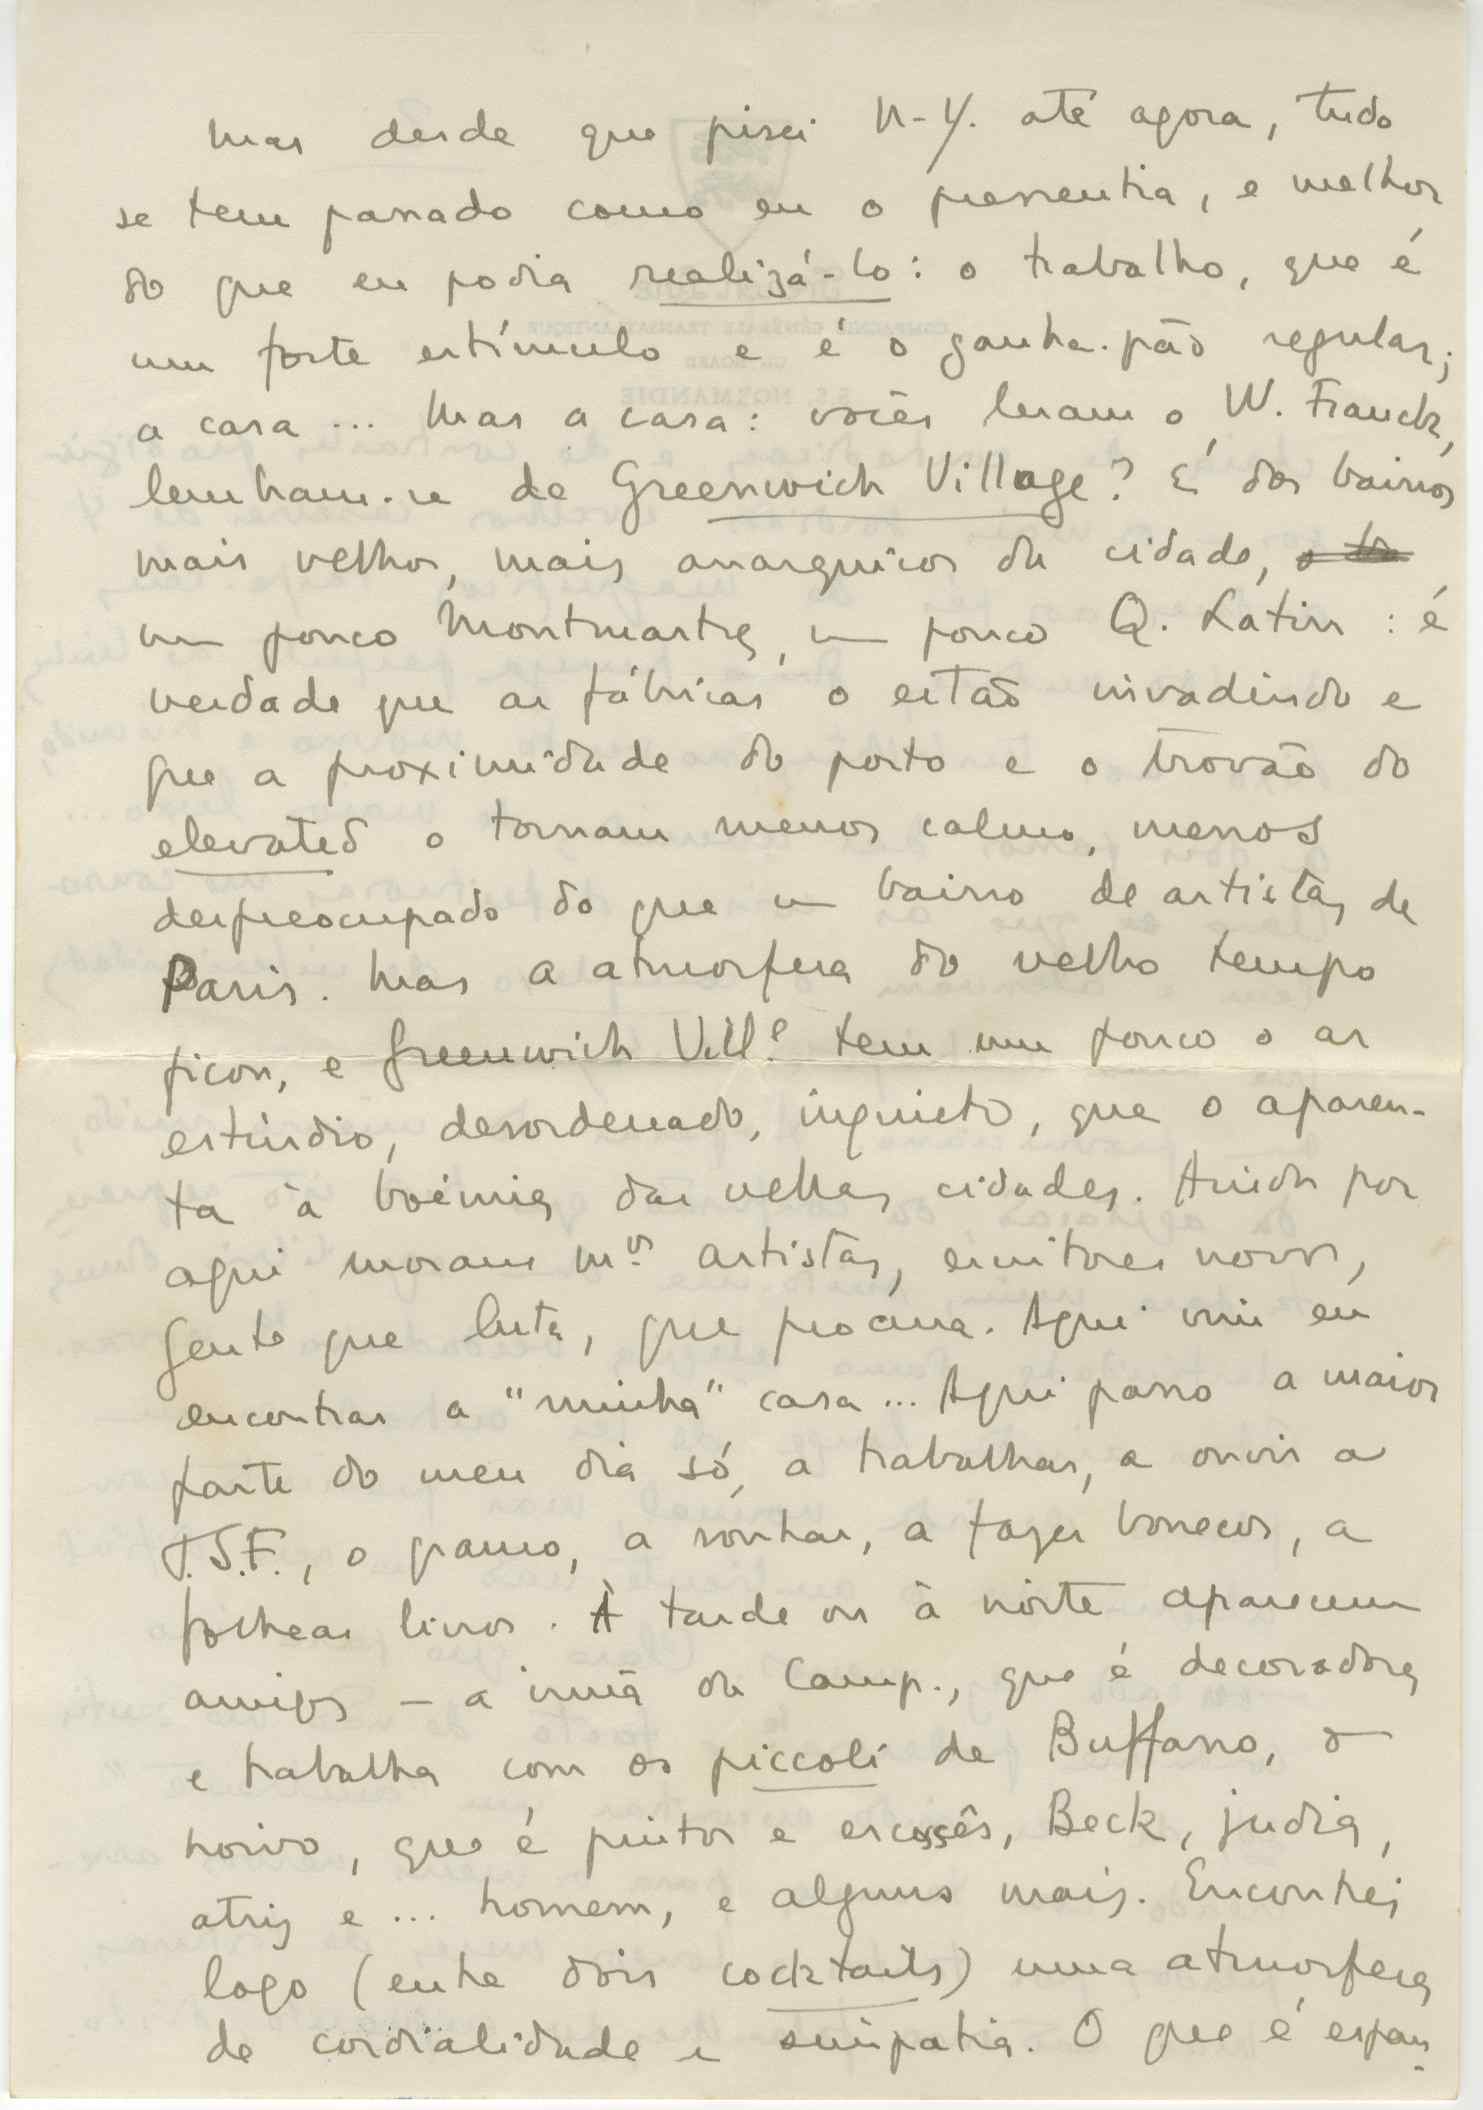 Mas desde que pisei N-Y. até agora, tudo
se tem passado como eu o pressentia, e melhor
do que eu podia realizá-lo: o trabalho, que é
um forte estímulo e é o ganha-pão regular;
a casa ... Mas a casa: vocês leram o W. Franck,
lembram-se de Greenwich Village? É dos bairros
mais velhos, mais anarquicos da cidade,
um pouco Montmartre, um pouco Q. Latin: é
verdade que as fábricas o estão invadindo e
que a proximidade do porto e o trovão do
elevated o tornam menos calmo, menos
despreocupado do que um bairro de artistas de
Paris. Mas a atmosfera do velho tempo
ficou, e Greenwich Vill.e tem um pouco o ar
estúrdio, desordenado, inquieto, que o aparen-
ta à boémia das velhas cidades. Ainda por
aqui moram m.os artistas, escritores novos,
gente que luta, que procura. Aqui vim eu
encontrar a "minha" casa... Aqui passo a maior
parte do meu dia só, a trabalhar, a ouvir a
T.S.F., o gramo, a sonhar, a fazer bonecos, a
folhear livros. À tarde ou à noite aparecem
amigos - a irmã da Camp., que é decoradora
e trabalha com os piccoli de Buffano, o
noivo, que é pintor e escossês, Beck, judia,
atriz e ... homem, e alguns mais. Encontrei
logo (entre dois cocktails) uma atmosfera
de cordialidade e simpatia. O que é espan-